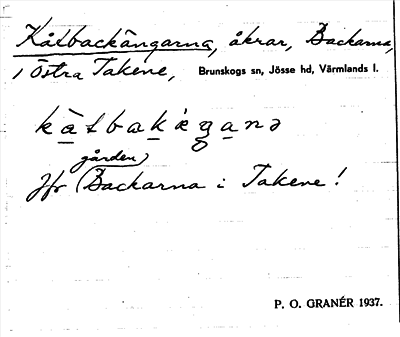 Kåtbackängarna, åkrar, Backarna,
i Östra Takene, Brunskogs sn, Jösse hd, Värmlands l.
kàtbakæŋanə
gården)
Jfr (Backarna i Takene!
P. O. GRANÉR 1937.